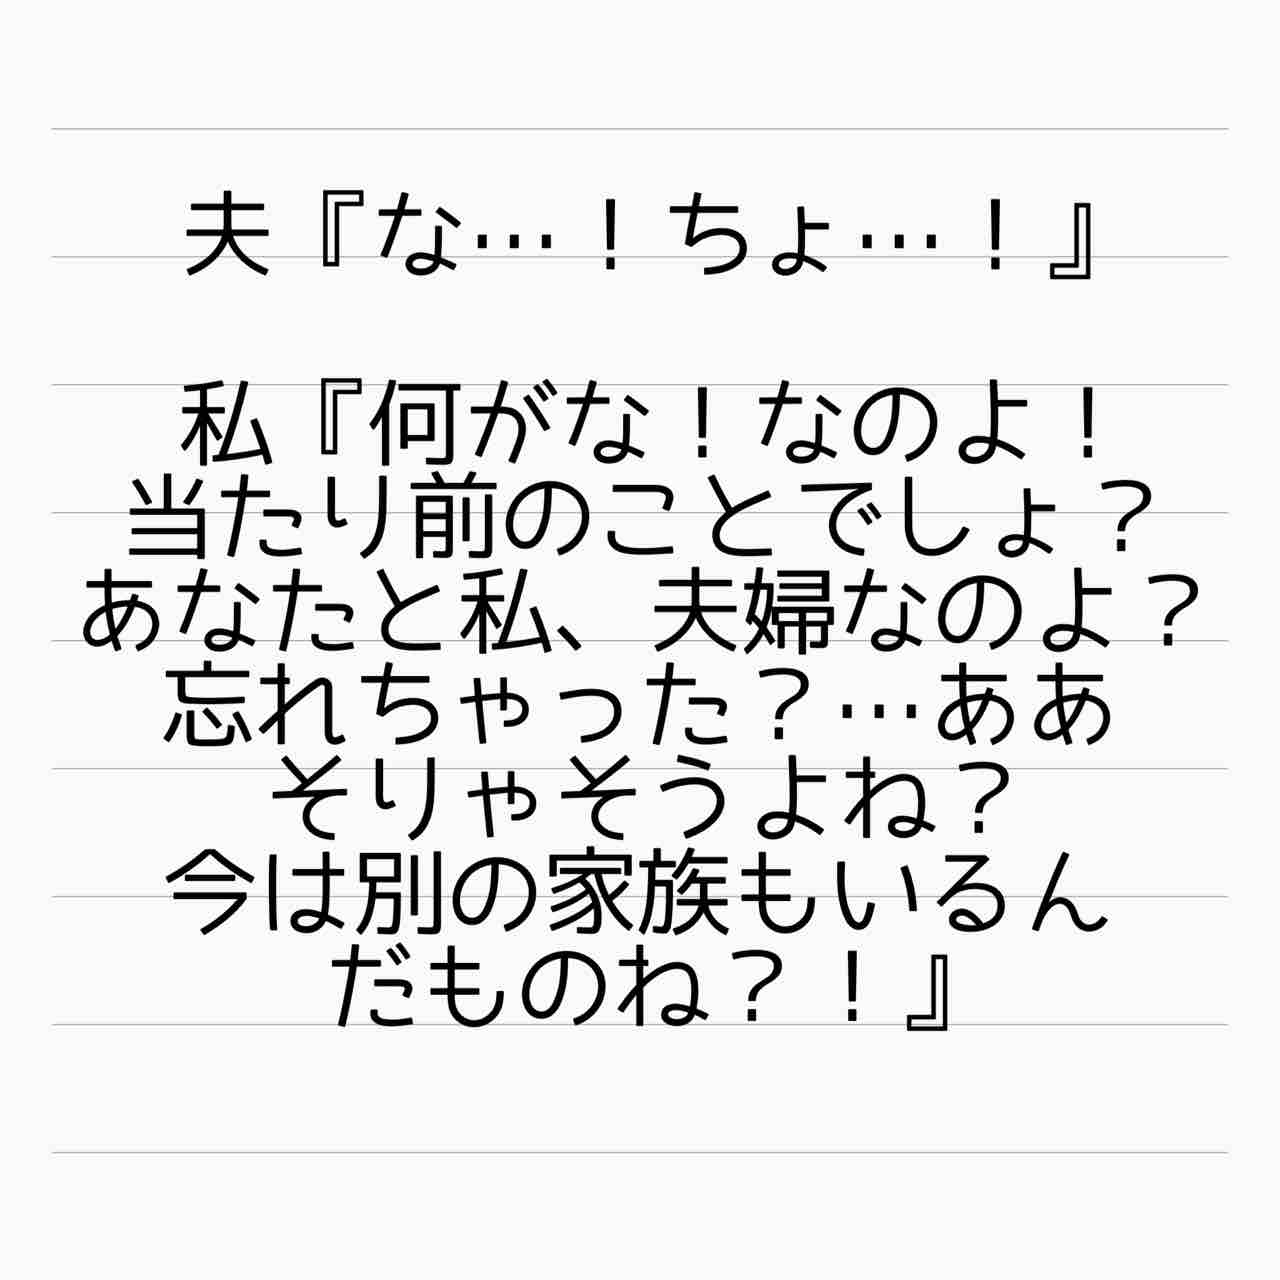 夫『な…！ちょ…！』
私『何がな！なのよ！
当たり前のことでしょ？
あなたと私、夫婦なのよ？
忘れちゃった？…ああ
そりゃそうよね？
今は別の家族もいるん
だものね？！』